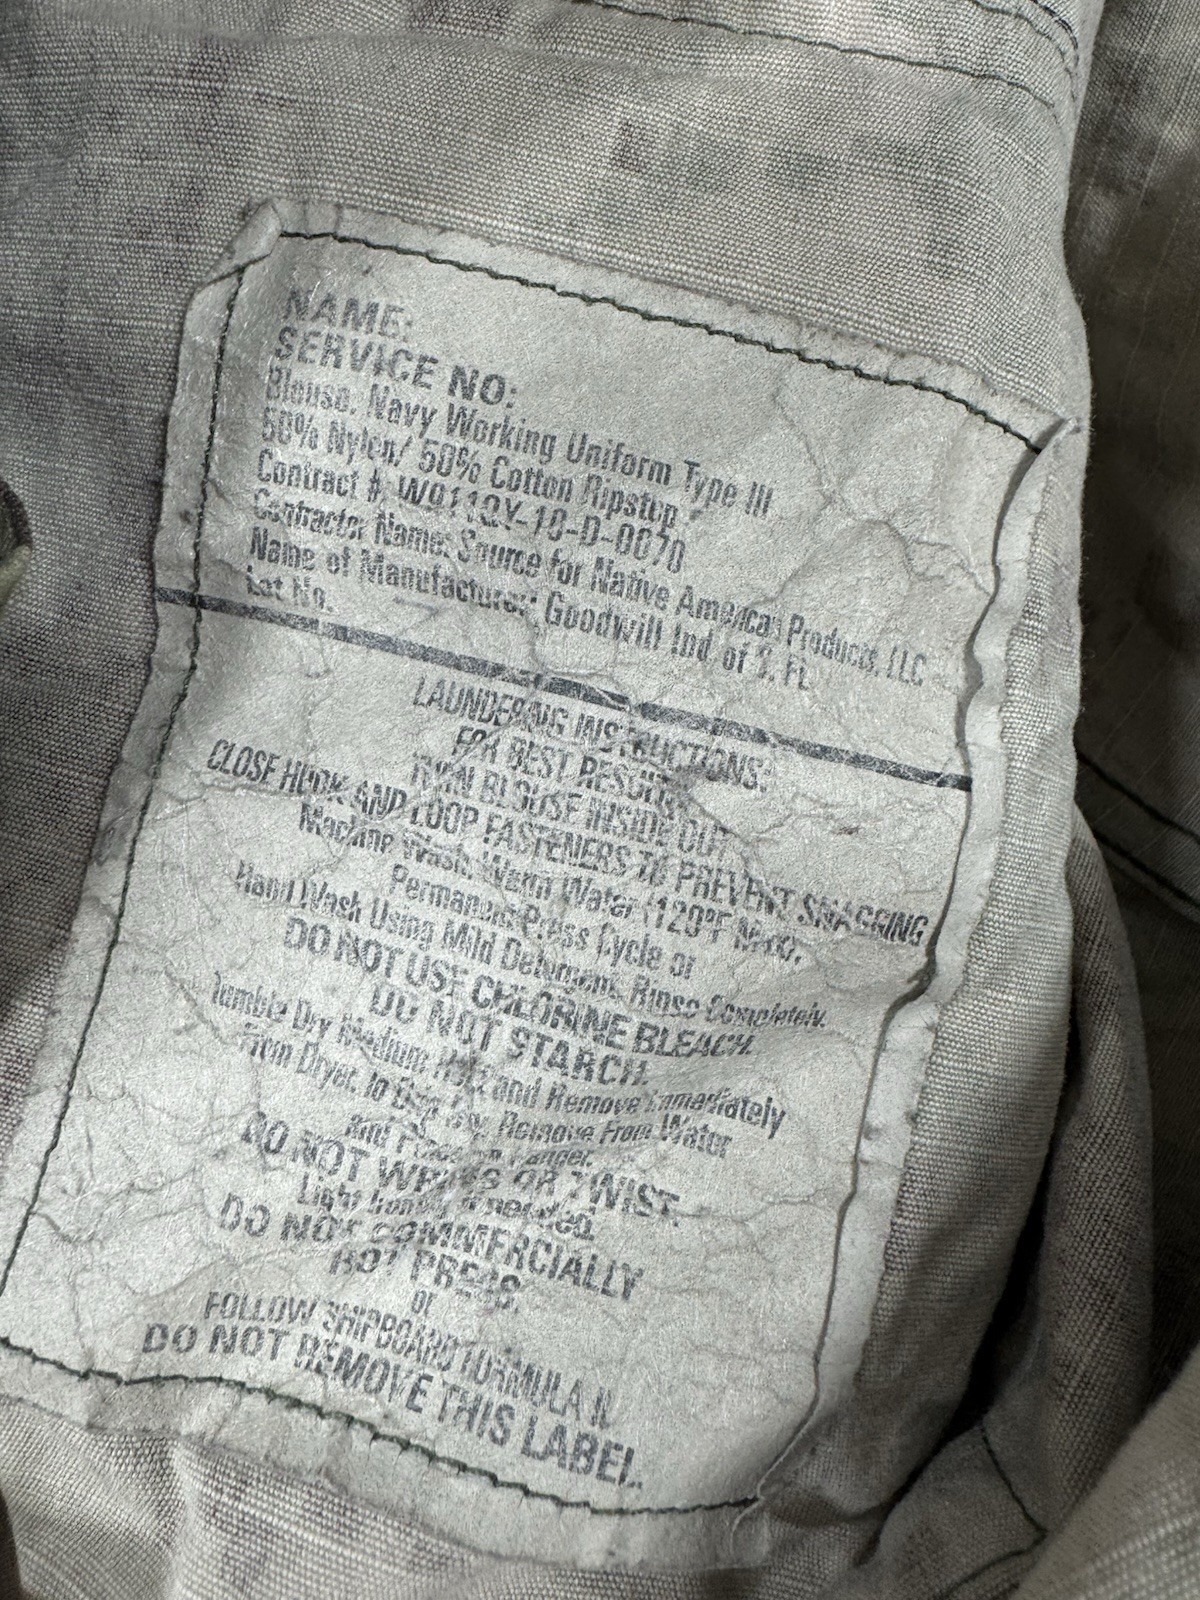 NAME:
SERVICE NO:
Blouse, Navy Working Uniform Type III
50% Nylon/ 50% Cotton Ripstop
Contract #: W911QY-10-D-0070
Contractor Name: Source for Native American Products, LLC
Name of Manufacturer: Goodwill Ind. of S. FL
Lot No.
LAUNDERING INSTRUCTIONS:
FOR BEST RESULTS
TURN BLOUSE INSIDE OUT
CLOSE HOOK AND LOOP FASTENERS TO PREVENT SNAGGING
Machine Wash: Warm Water (120°F Max),
Permanent Press Cycle or
Hand Wash Using Mild Detergent, Rinse Completely.
DO NOT USE CHLORINE BLEACH.
DO NOT STARCH.
Tumble Dry Medium Heat and Remove Immediately
From Dryer. To Drip Dry, Remove From Water
and Place on Hanger.
DO NOT WRING OR TWIST.
Light Ironing if needed.
DO NOT COMMERCIALLY
HOT PRESS.
or
FOLLOW SHIPBOARD FORMULA II.
DO NOT REMOVE THIS LABEL.